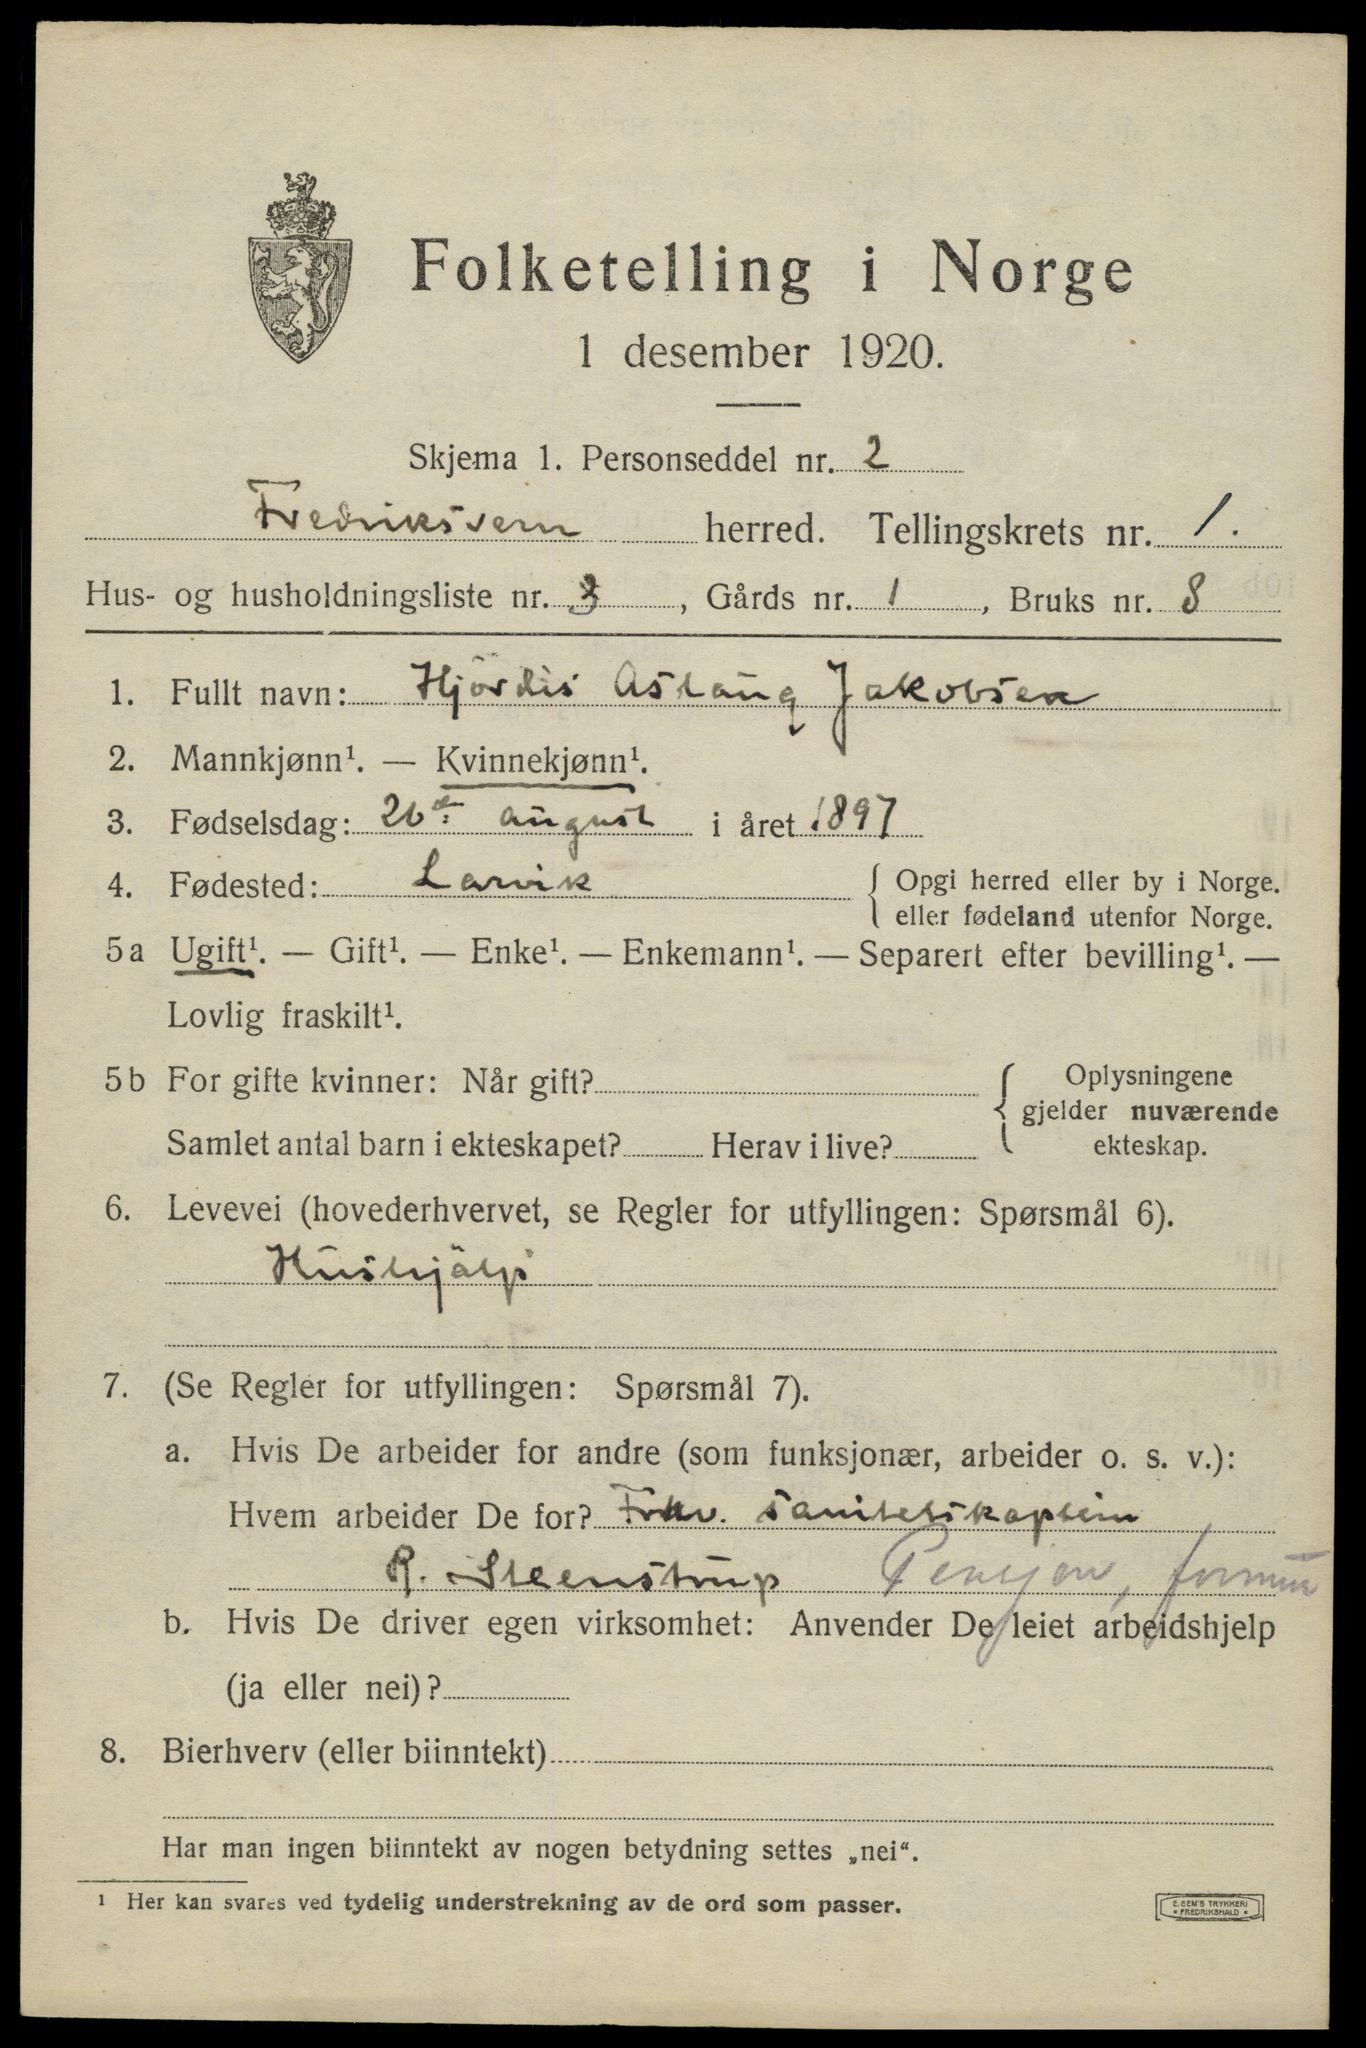 Folketelling i Norge
1 desember 1920.
Skjema 1. Personseddel nr. 2
Fredriksvern herred. Tellingskrets nr. 1.
Hus- og husholdningsliste nr. 3, Gårds nr. 1, Bruks nr. 8
1. Fullt navn: Hjördis Aslaug Jakobsen
2. Mannkjønn¹. — Kvinnekjønn¹.
3. Fødselsdag: 26de august i året 1897
4. Fødested: Larvik { Opgi herred eller by i Norge.
eller fødeland utenfor Norge.
5a Ugift¹. — Gift¹. — Enke¹. — Enkemann¹. — Separert efter bevilling¹. —
Lovlig fraskilt¹.
5b For gifte kvinner: Når gift? { Oplysningene
gjelder nuværende
Samlet antal barn i ekteskapet? Herav i live? ekteskap.
6. Levevei (hovederhvervet, se Regler for utfyllingen: Spørsmål 6).
Hushjälp
7. (Se Regler for utfyllingen: Spørsmål 7).
a. Hvis De arbeider for andre (som funksjonær, arbeider o. s. v.):
Hvem arbeider De for? sanitetskaptein
R. Steenstrup Pensjon, formue
b. Hvis De driver egen virksomhet: Anvender De leiet arbeidshjelp
(ja eller nei)?
8. Bierhverv (eller biinntekt)
Har man ingen biinntekt av nogen betydning settes „nei“.
¹ Her kan svares ved tydelig understrekning av de ord som passer.
E. SEM'S TRYKKERI
FREDRIKSHALD